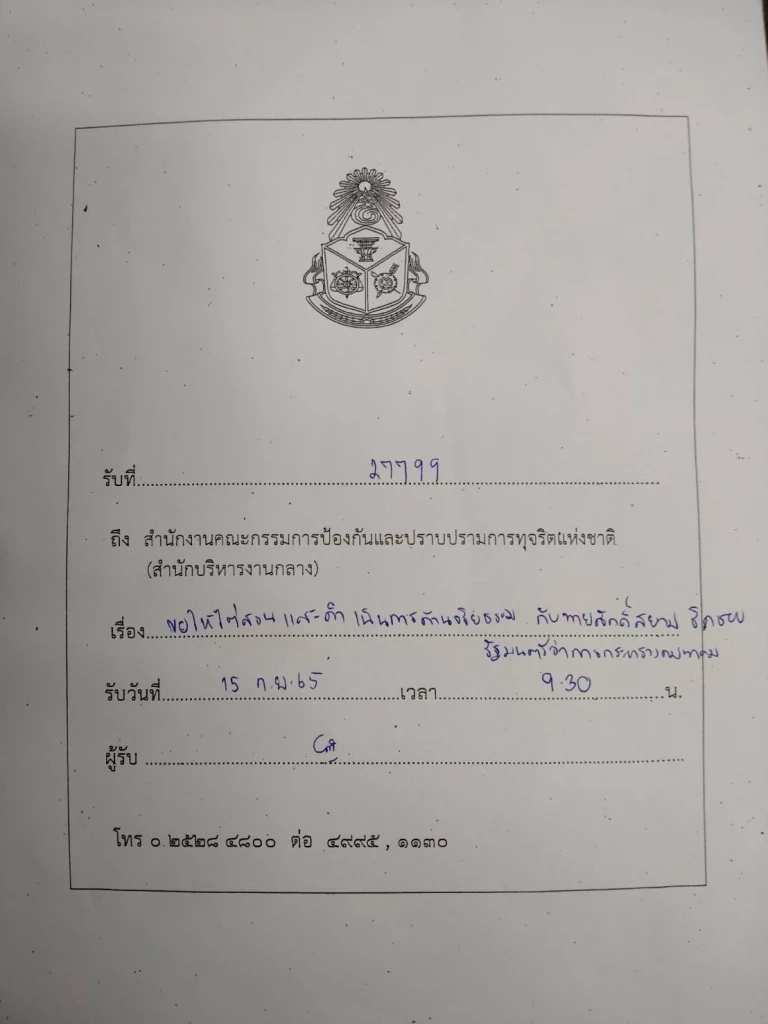 รับที่ 27799
ถึง สำนักงานคณะกรรมการป้องกันและปราบปรามการทุจริตแห่งชาติ
(สำนักบริหารงานกลาง)
เรื่อง ขอให้ไต่สวน และดำเนินการด้านจริยธรรม กับนายศักดิ์สยาม ชิดชอบ
รัฐมนตรีว่าการกระทรวงคมนาคม
รับวันที่ 15 ก.ย.65 เวลา 9.30 น.
ผู้รับ
โทร ๐ ๒๕๒๘ ๔๘๐๐ ต่อ ๔๙๙๕ , ๑๑๓๐